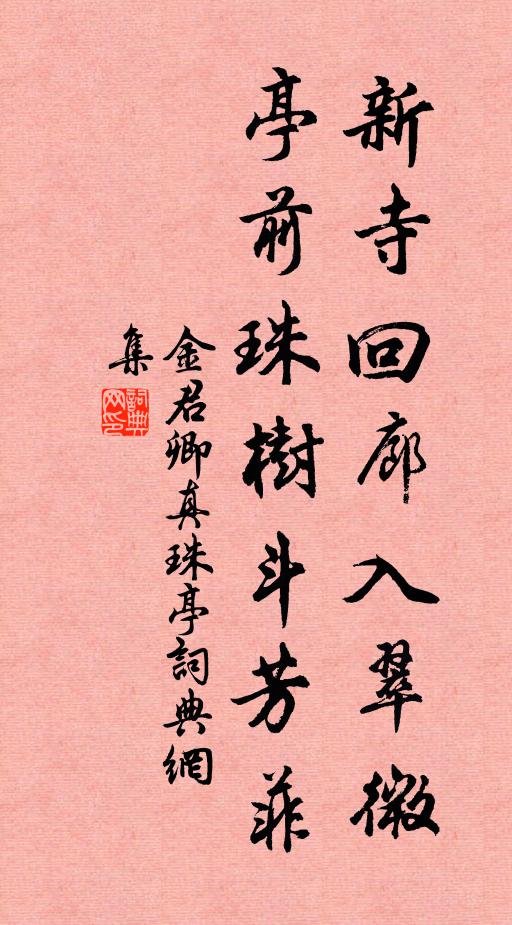 新寺回廊入翠微
亭前珠樹斗芳菲
金君卿真珠亭詞典網
集
詞典
网印